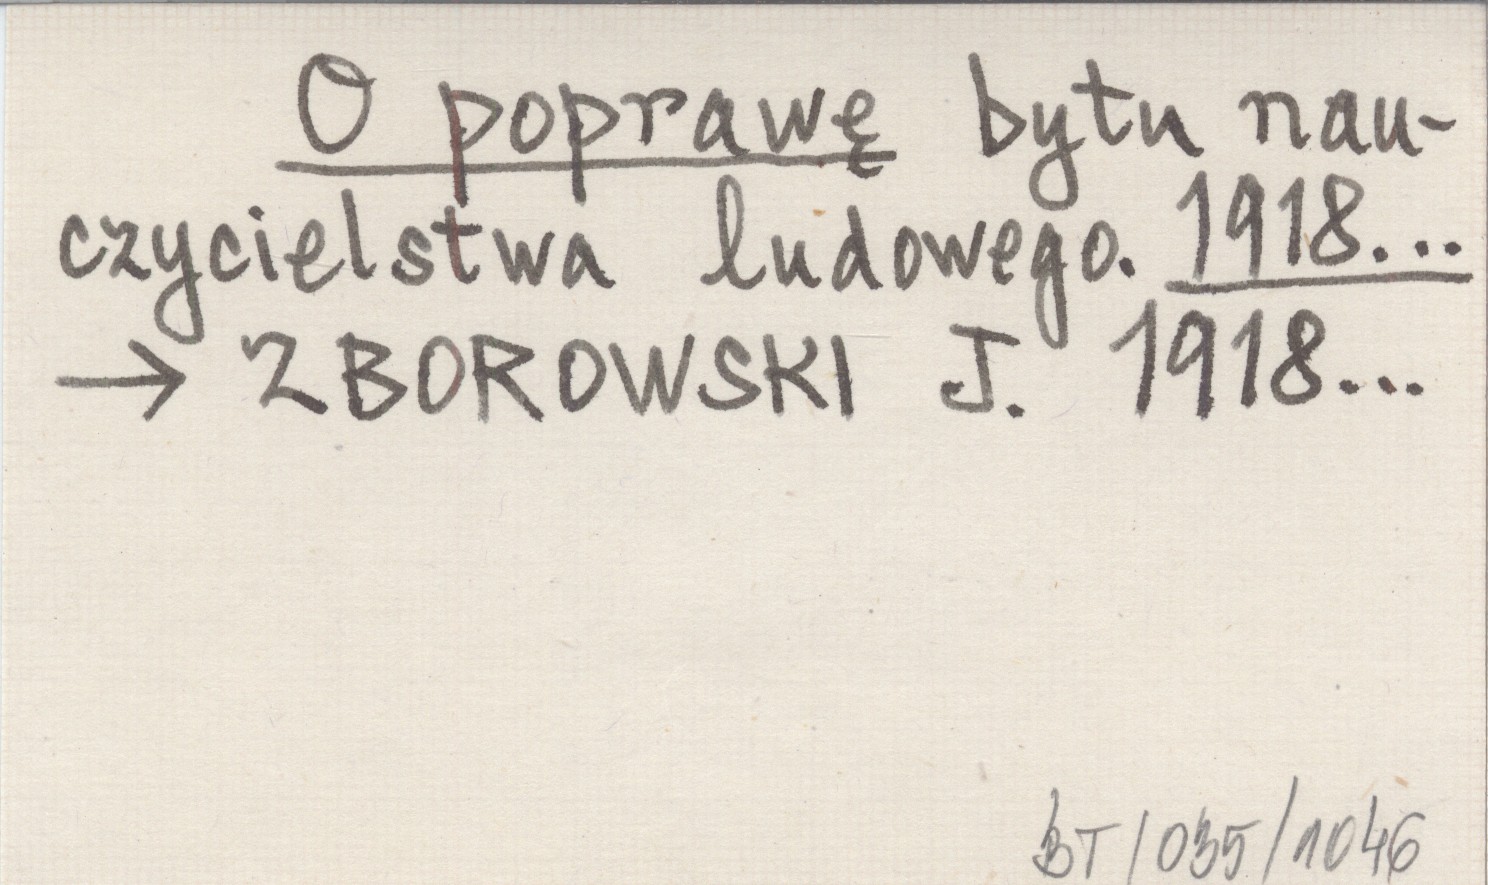 O poprawę bytu nau-
czycielstwa ludowego. 1918...
→ ZBOROWSKI J. 1918...
BT/035/1046